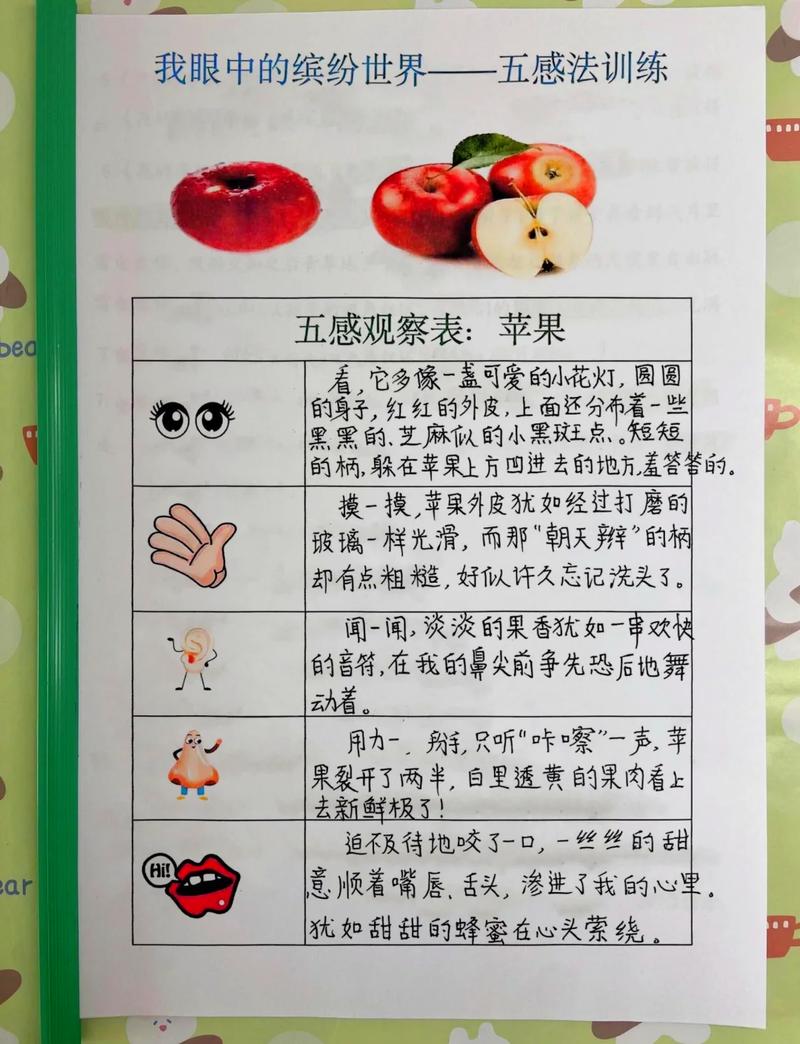 我眼中的缤纷世界——五感法训练
五感观察表：苹果
看,它多像一盏可爱的小花灯,圆圆
的身子,红红的外皮,上面还分布着一些
黑黑的、芝麻似的小黑斑点。短短
的柄,躲在苹果上方凹进去的地方,羞答答的。
摸一摸,苹果外皮犹如经过打磨的
玻璃一样光滑,而那“朝天辫”的柄
却有点粗糙,好似许久忘记洗头了。
闻一闻,淡淡的果香犹如一串欢快
的音符,在我的鼻尖前争先恐后地舞
动着。
用力一掰,只听“咔嚓”一声,苹
果裂开了两半,白里透黄的果肉看上
去新鲜极了!
Hi!
迫不及待地咬了一口,一丝丝的甜
意顺着嘴唇、舌头,渗进了我的心里。
犹如甜甜的蜂蜜在心头萦绕。
bear
ear